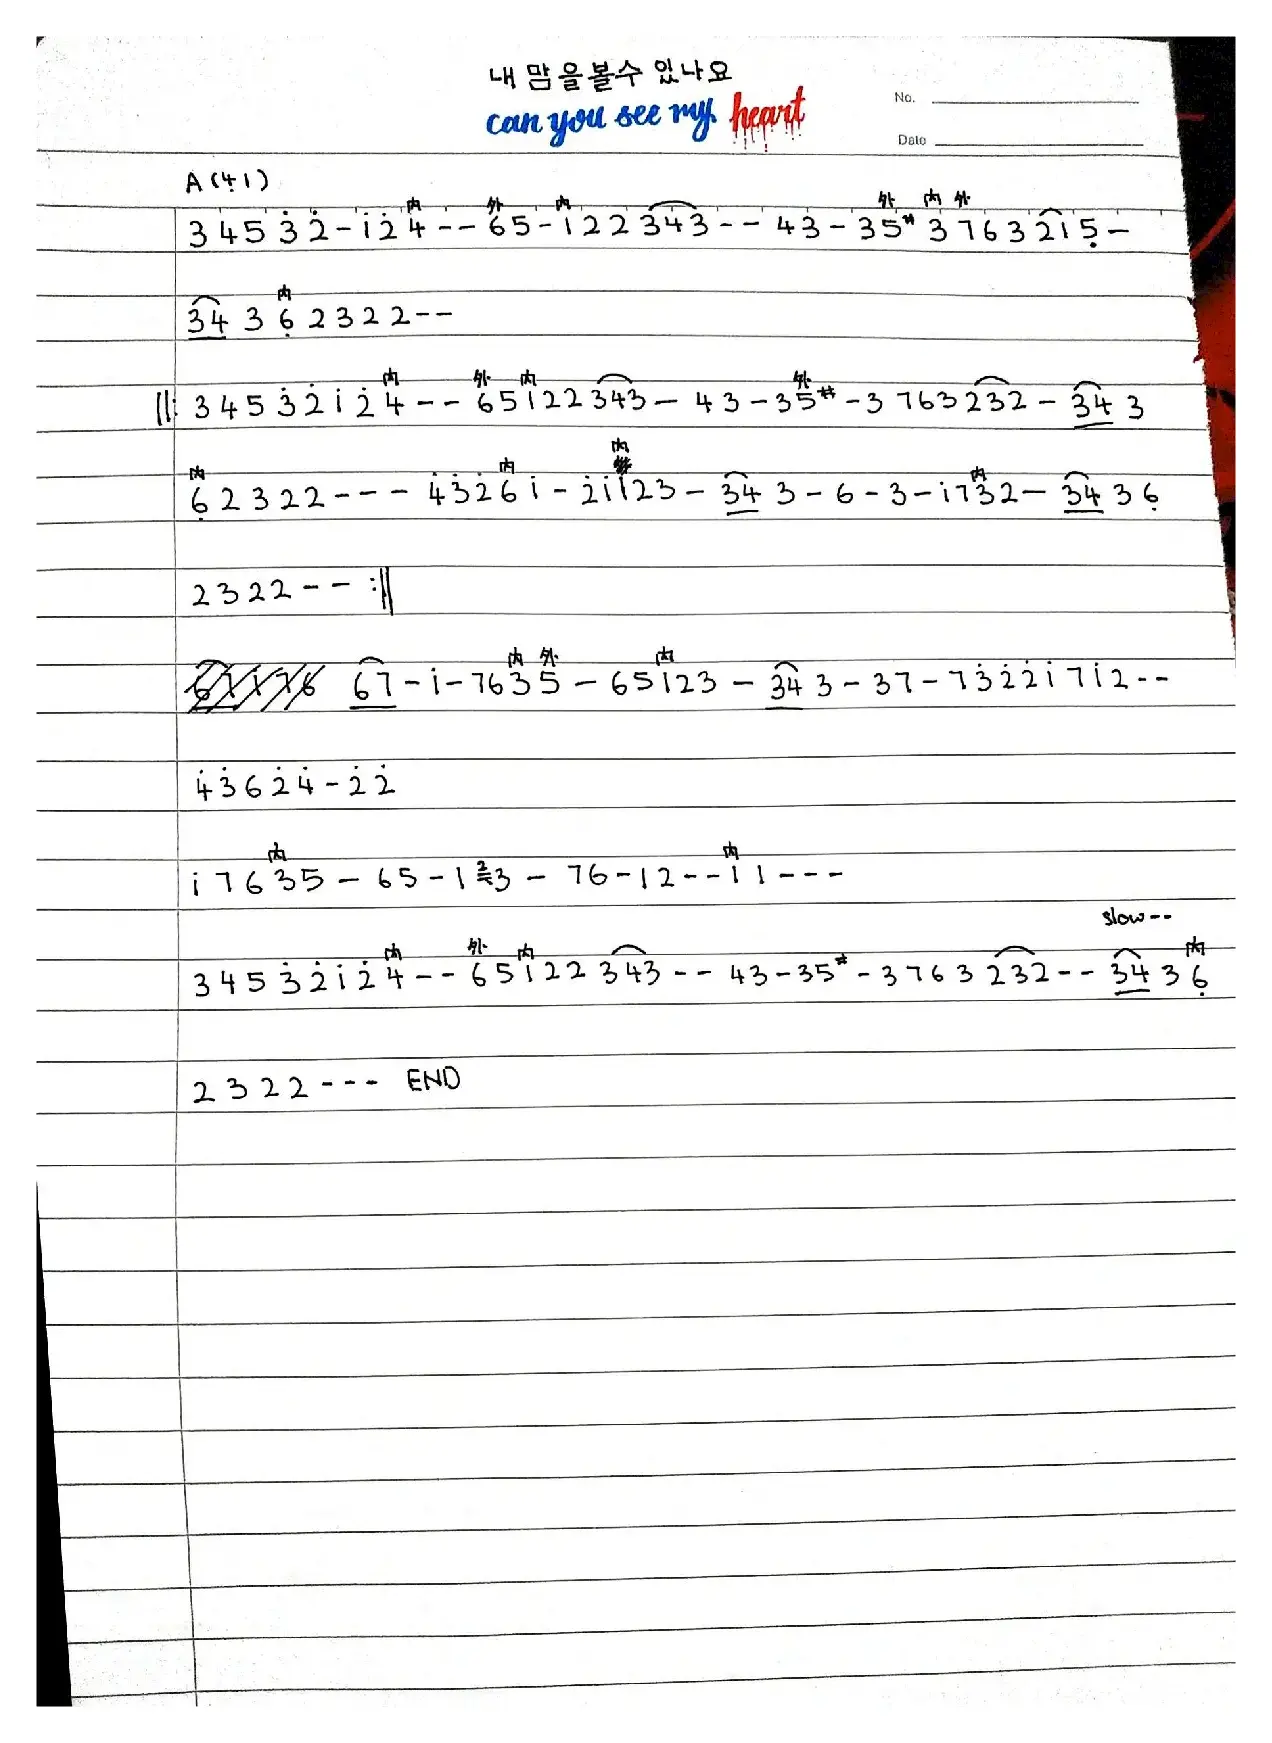 내 맘을볼수 있나요
can you see my heart
No.
Date
A (4̣ 1)
内 外 内 外 内 外
3 4 5 3̇ 2̇ - i 2̇ 4 - - 6 5 - 1 2 2 3 4 3 - - 4 3 - 3 5# 3 7 6 3 2 1 5̣ -
内
3 4 3 6̣ 2 3 2 2 - -
内 外 内 外
||: 3 4 5 3̇ 2̇ i 2̇ 4 - - 6 5 1 2 2 3 4 3 - 4 3 - 3 5# - 3 7 6 3 2 3 2 - 3 4 3
内 内 内 内
6̣ 2 3 2 2 - - - 4̇ 3̇ 2̇ 6 i - 2̇ i 1 2 3 - 3 4 3 - 6 - 3 - i 7 3 2 - 3 4 3 6̣
2 3 2 2 - - :||
内 外 内
6 7 - i - 7 6 3 5 - 6 5 1 2 3 - 3 4 3 - 3 7 - 7 3̇ 2̇ 2̇ i 7 i 2 - -
4̇ 3̇ 6 2̇ 4̇ - 2̇ 2̇
内 内
i 7 6 3 5 - 6 5 - 1 2 3 - 7 6 - 1 2 - - 1 1 - - -
slow --
内 外 内 内
3 4 5 3̇ 2̇ i 2̇ 4 - - 6 5 1 2 2 3 4 3 - - 4 3 - 3 5# - 3 7 6 3 2 3 2 - - 3 4 3 6̣
2 3 2 2 - - - END